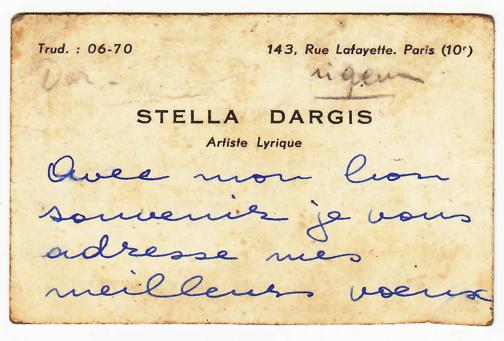 Trud. : 06-70
143, Rue Lafayette. Paris (10ᵉ)
STELLA DARGIS
Artiste Lyrique
Avec mon bon
souvenir je vous
adresse mes
meilleurs voeux